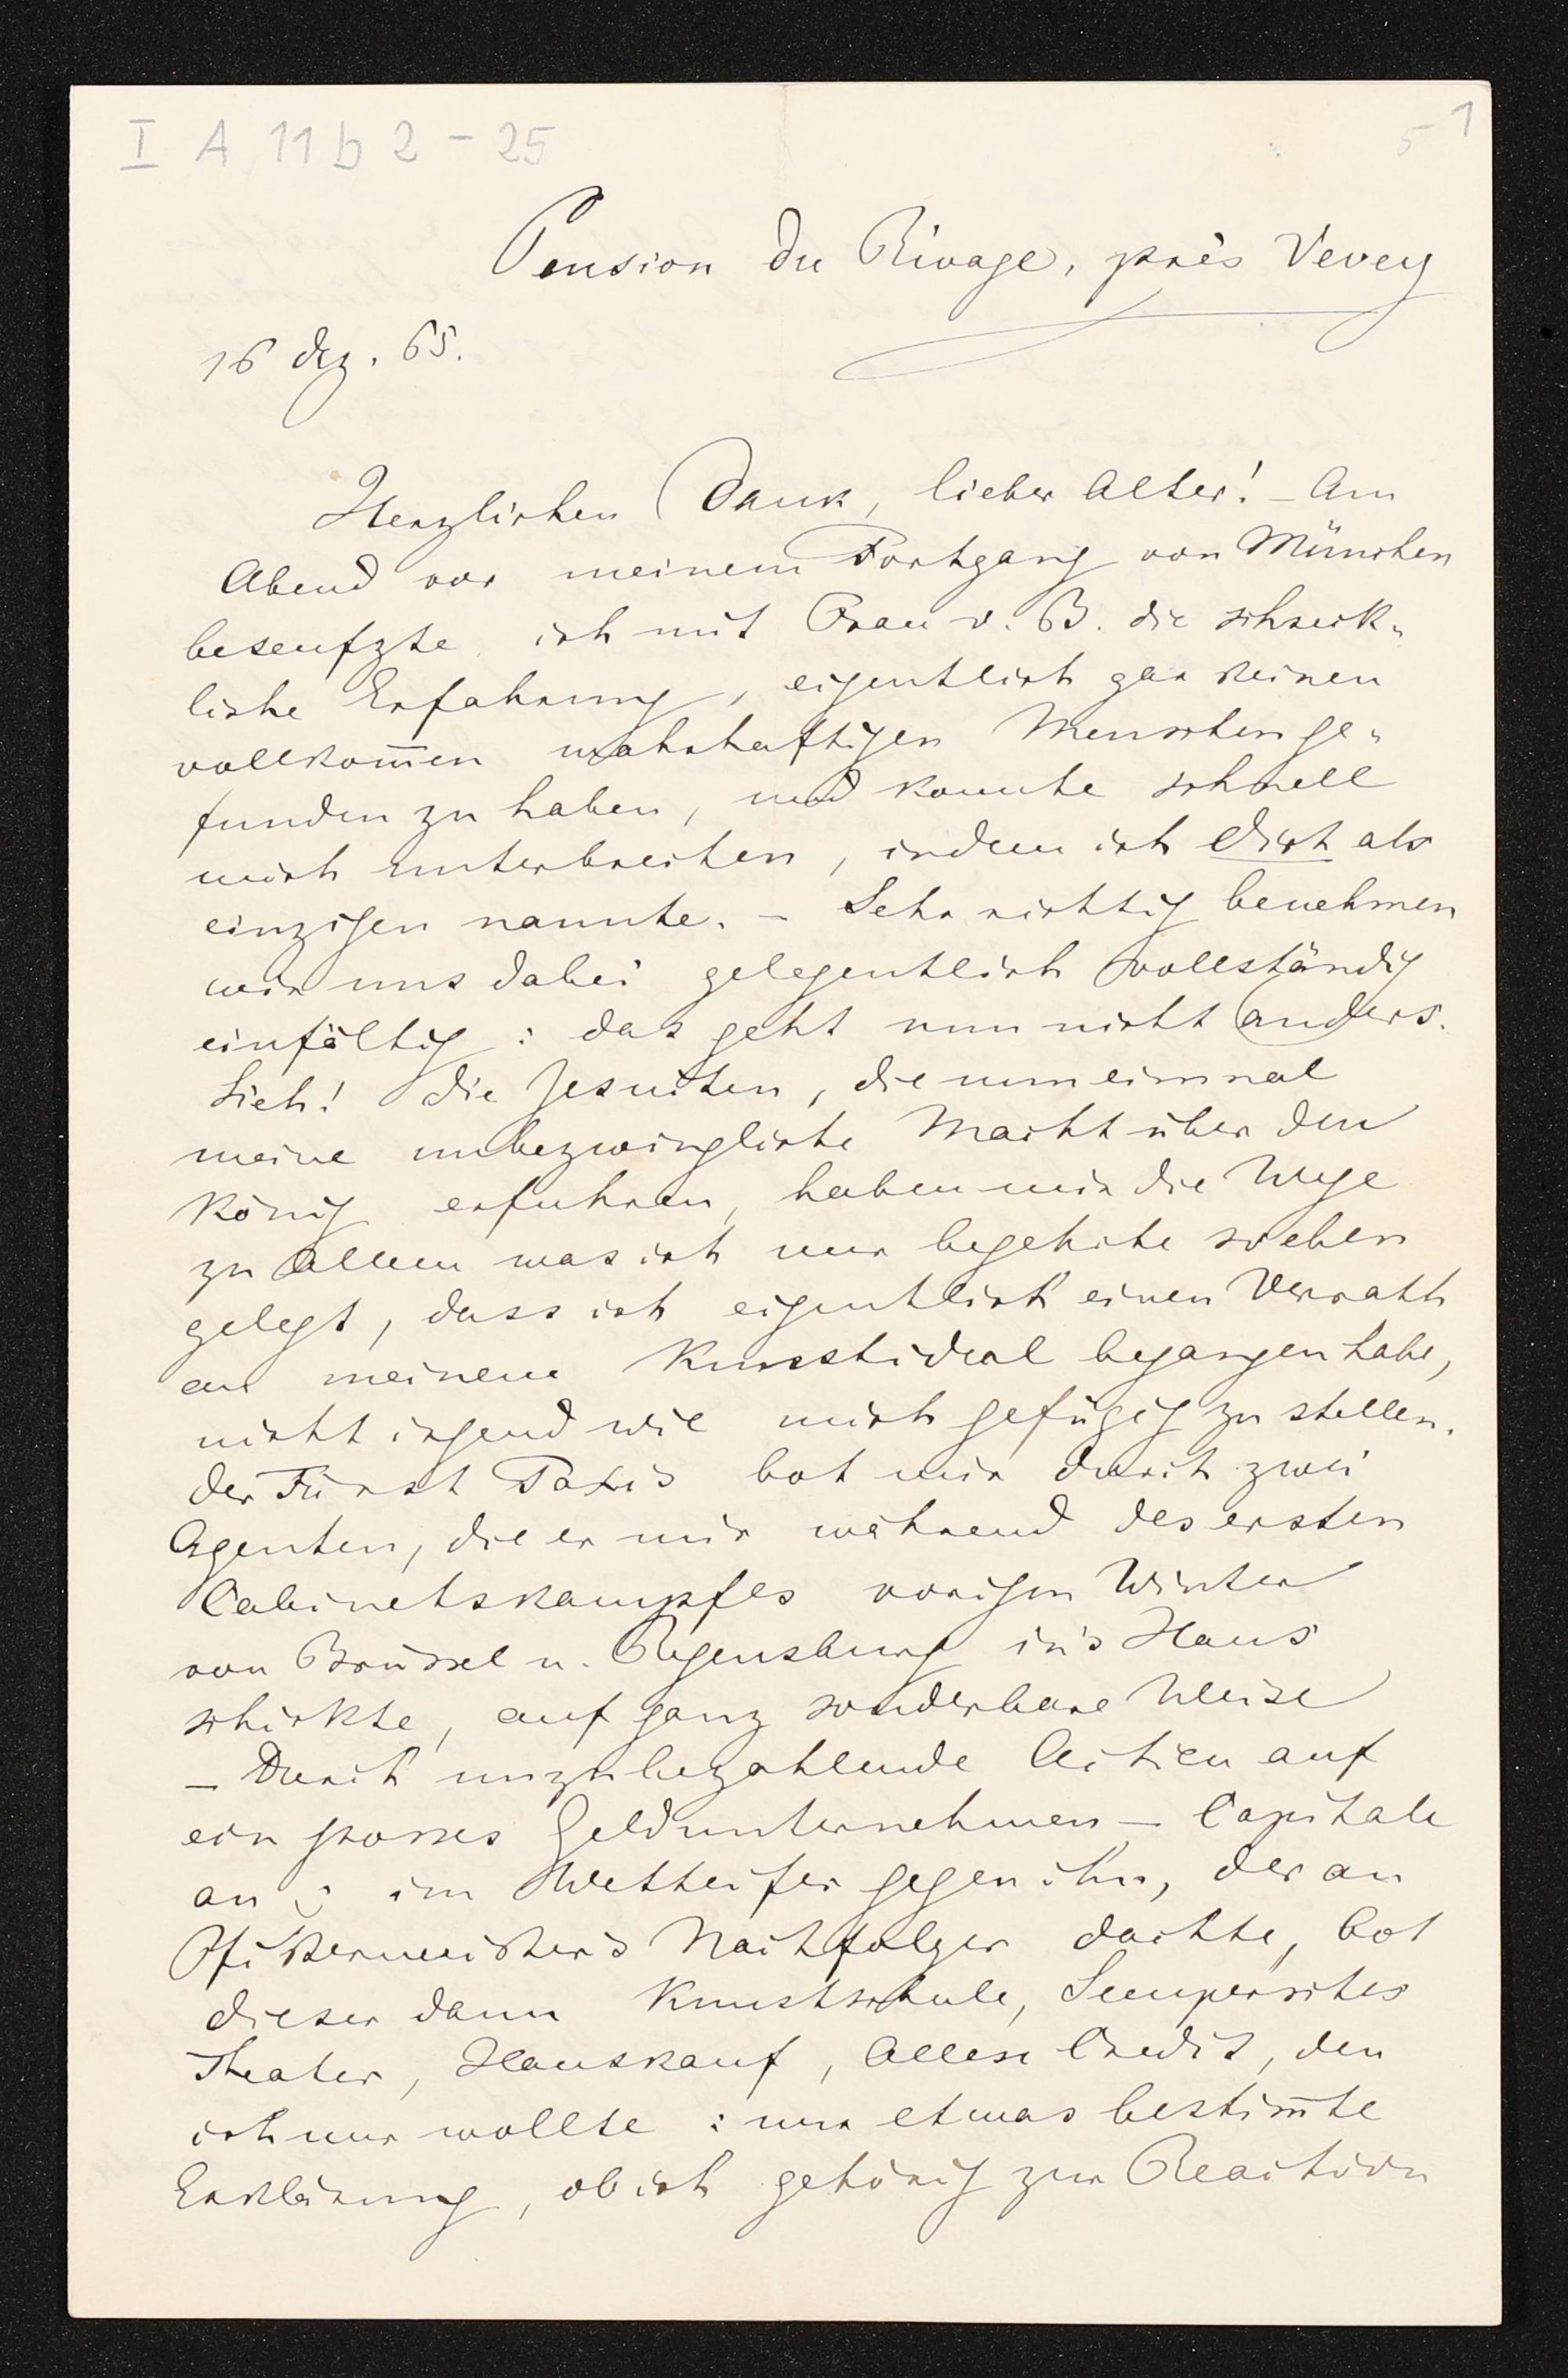 I A 11 b 2 - 25
5 1
Pension du Rivage, près Vevey
16 dez. 65.
Herzlichen Dank, lieber Alter! – Am
Abend vor meinem Fortgang von München
beseufzte ich mit Frau v. B. die schreck-
liche Erfahrung, eigentlich gar keinen
vollkom̅en wahrhaftigen Menschen ge-
funden zu haben, und konnte schnell
mich unterbrechen, indem ich dich als
einzigen nannte. – Sehr richtig benehmen
wir uns dabei gelegentlich vollständig
einfältig: das geht nun nicht anders.
Sieh! die Jesuiten, die nun einmal
meine unbezwingliche Macht über den
König erfuhren, haben mir die Wege
zu Allem was ich nur begehrte so eben
gelegt, dass ich eigentlich einen Verrath
an meinem Kunstideal begangen habe,
nicht irgend wie mich gefügig zu stellen.
der Fürst Taxis bot mir durch zwei
Agenten, die er mir während des ersten
Cabinetskampfes vorigen Winter
von Brüssel u. Regensburg in's Haus
schickte, auf ganz sonderbare Weise
– Durch unzubezahlende Actien auf
ein grosses Geldunternehmen – Capitale
an; im Wetteifer gegen ihn, der an
Pfistermeister's Nachfolger dachte, bot
dieser dann Kunstschule, Semper'sches
Theater, Hauskauf, Allen Credit, den
ich nur wollte: nur etwas bestim̅te
Erklärung, ob ich gehörig zur Reaction